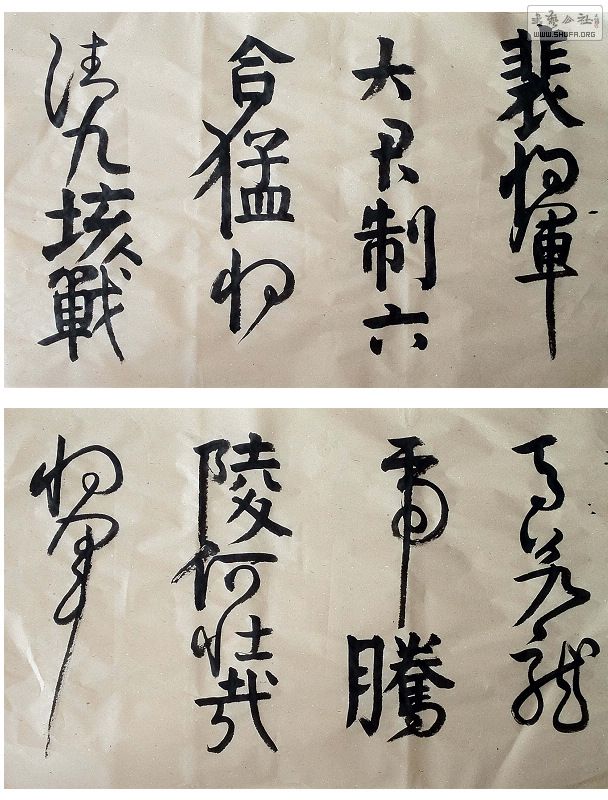 書藝公社
WWW.SHUFA.ORG
裴將軍
大君制六
合猛將
清九垓戰
馬若龍
虎騰
陵何壯哉
將軍